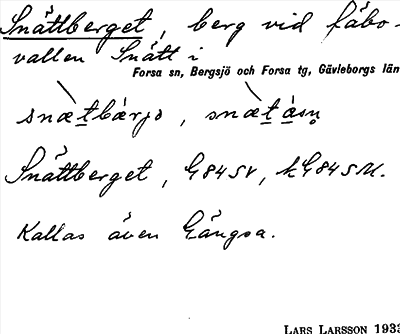 Snättberget, berg vid fäbo-
vallen Snätt i
Forsa sn, Bergsjö och Forsa tg, Gävleborgs län
snæt̲bàrjo, snæt̲ a̲sn̥
Snättberget, G84SV, kG84SM.
Kallas även Gångsa.
LARS LARSSON 1933